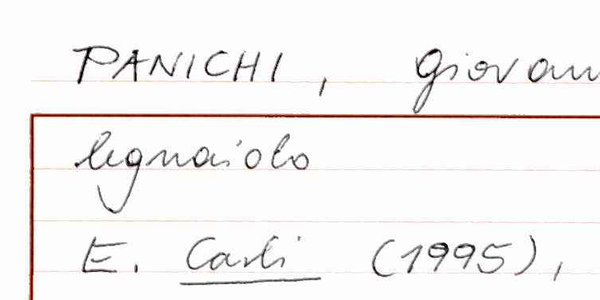 PANICHI, Giovan
legnaiolo
E. Carli (1995),